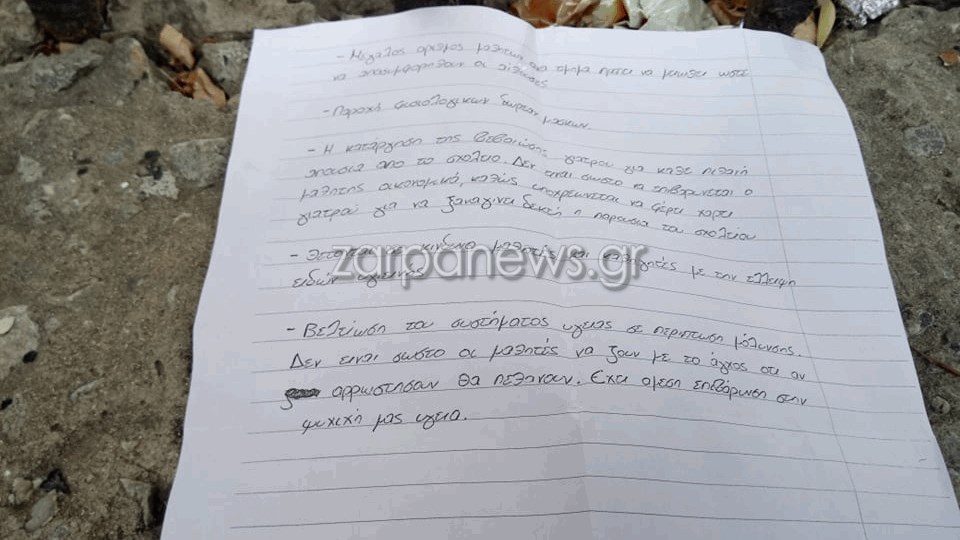 - Μεγαλος αριθμος μαθητων ανα τμημα πρεπει να μειωθει ωστε
να αποσυμφορηθουν οι αιθουσες
- Παροχή φυσιολογικων δωρεαν μασκων.
- Η κατάργηση της βεβαιώσης γιατρου για καθε πιθανή
απουσια απο το σχολειο. Δεν ειναι σωστο να επιβαρυνεται ο
μαθητης οικονομικά, καθώς υποχρεωνεται να φέρει χαρτι
γιατρού για να ξαναγινει δεκτή η παρουσια του σχολειου
- Θετονται σε κινδυνο μαθητές και καθηγητές με την ελλειψη
ειδών υγιεινης
zarpanews.gr
- Βελτίωση του συστήματος υγειας σε περιπτωση μόλυνσης.
Δεν ειναι σωστο οι μαθητές να ζουν με το άγχος οτι αν
αρρωστησουν θα πεθανουν. Εχει αμεση επιβάρυνση στην
ψυχική μας υγεια.